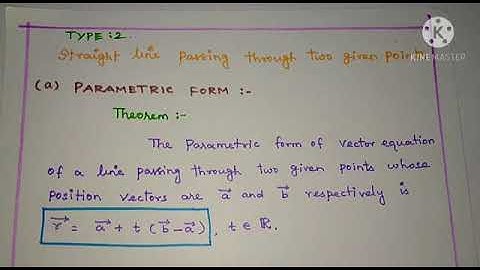 TYPE :2
Straight line passing through two given points
KINEMASTER
(a) PARAMETRIC FORM :-
Theorem :-
The Parametric form of vector equation
of a line passing through two given points whose
position vectors are a⃗ and b⃗ respectively is
r⃗ = a⃗ + t (b⃗ - a⃗) , t ∈ ℝ.